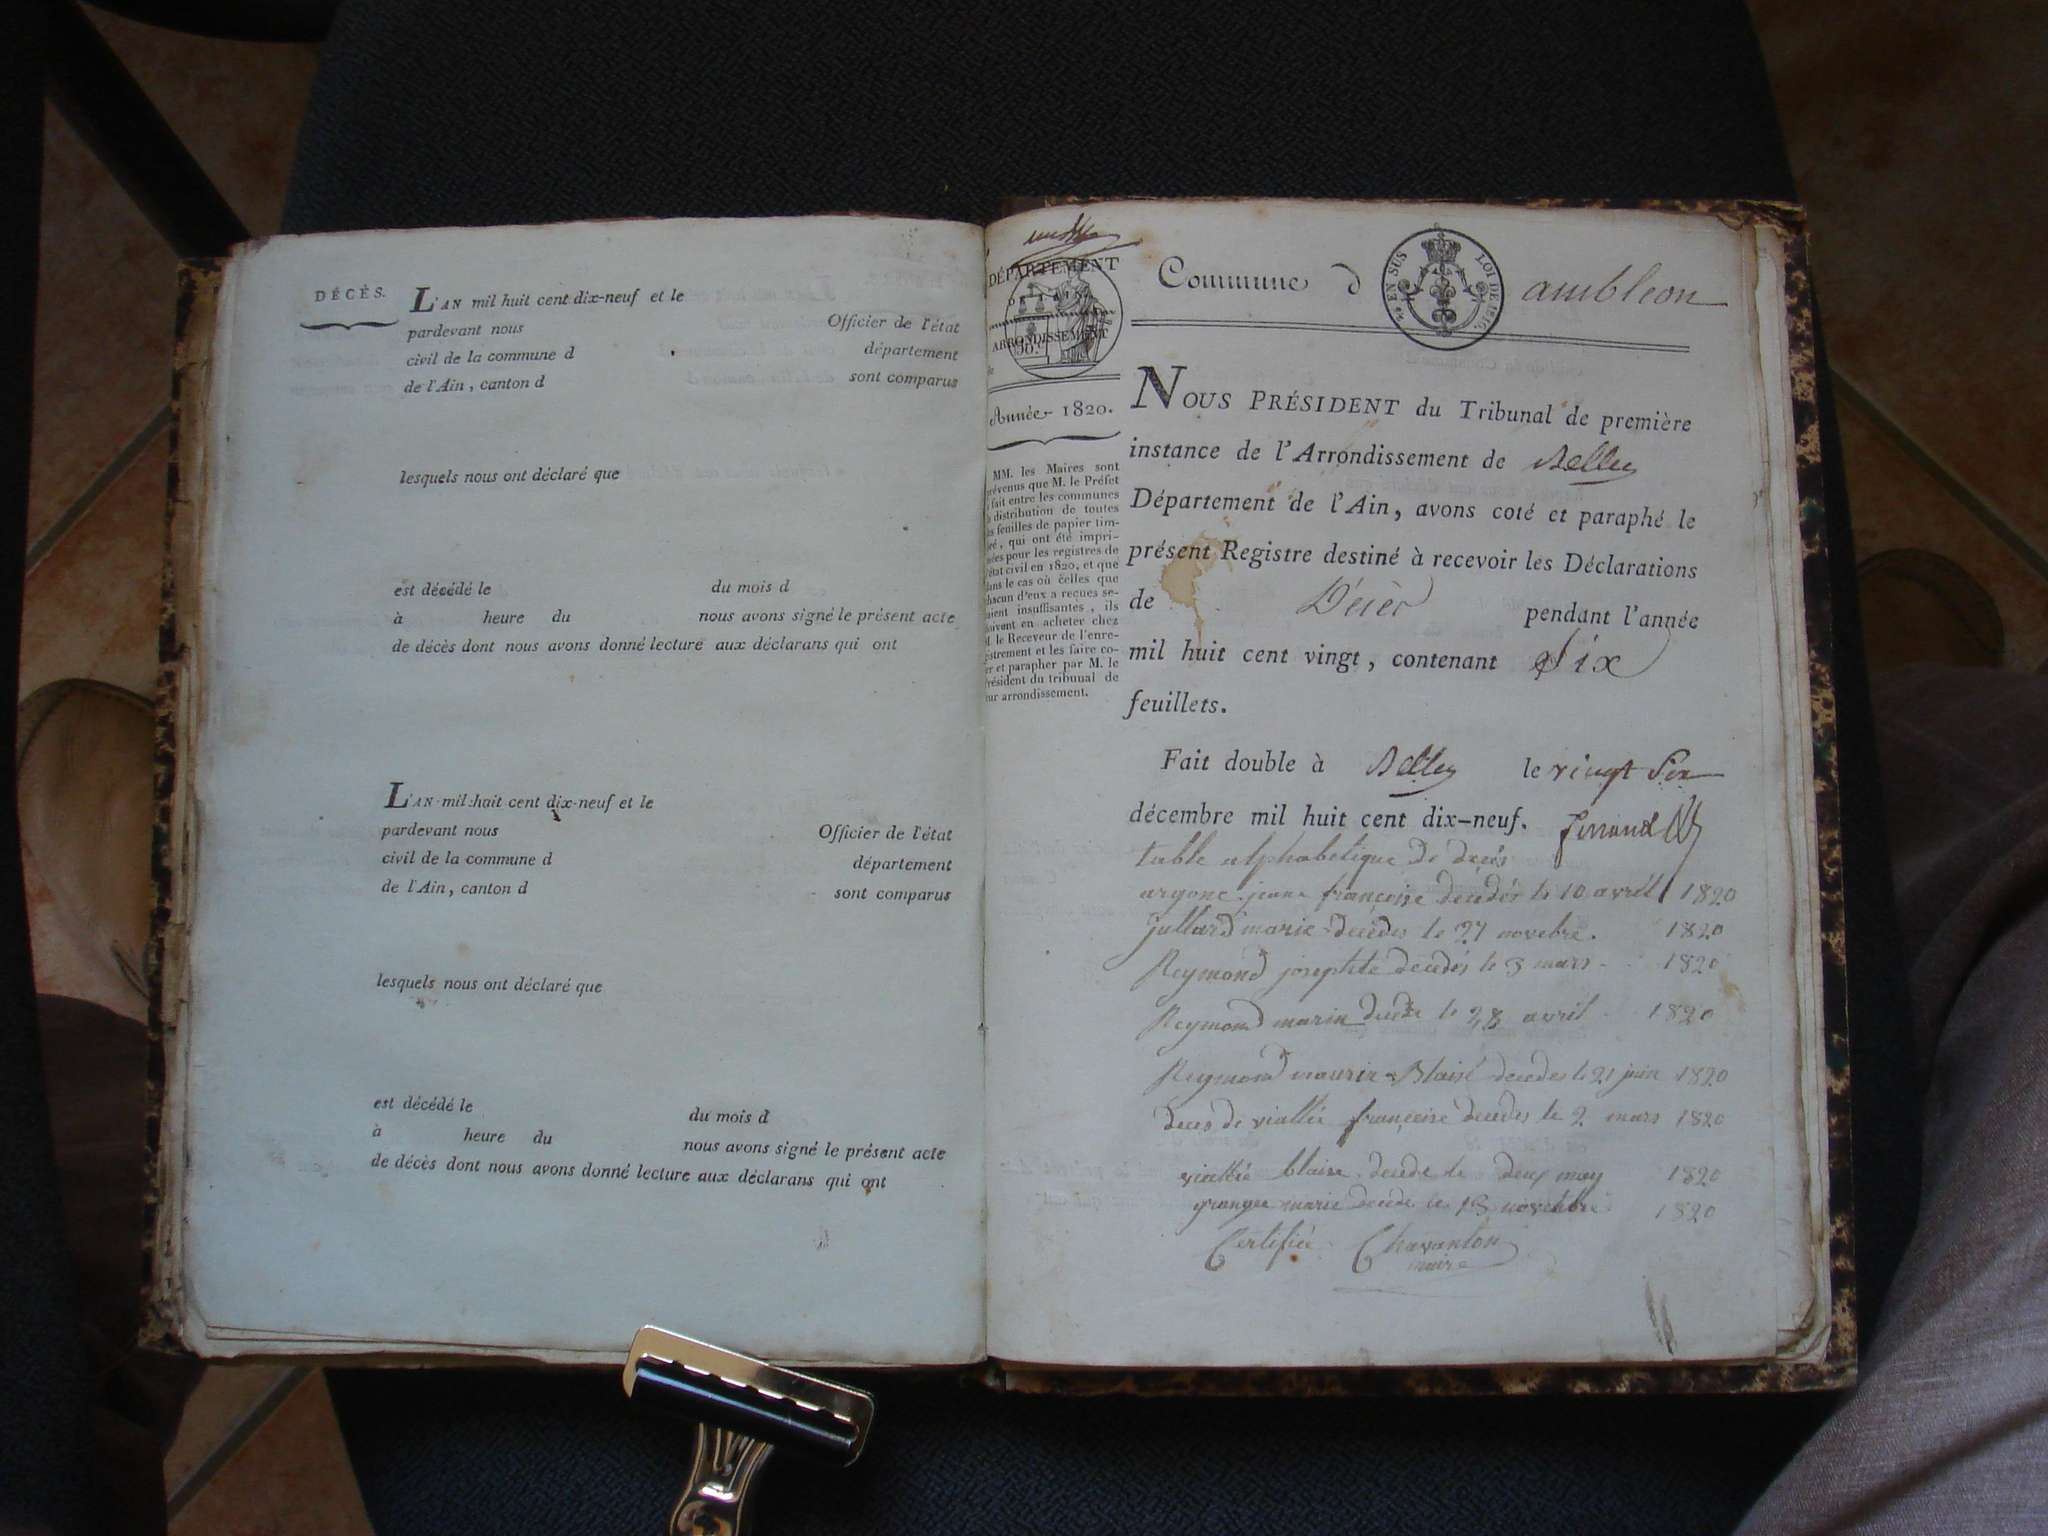 DÉCÈS.
L'AN mil huit cent dix-neuf et le
pardevant nous Officier de l'état
civil de la commune d département
de l'Ain, canton d sont comparus
lesquels nous ont déclaré que
est décédé le du mois d
à heure du nous avons signé le présent acte
de décès dont nous avons donné lecture aux déclarans qui ont
L'AN mil huit cent dix-neuf et le
pardevant nous Officier de l'état
civil de la commune d département
de l'Ain, canton d sont comparus
lesquels nous ont déclaré que
est décédé le du mois d
à heure du nous avons signé le présent acte
de décès dont nous avons donné lecture aux déclarans qui ont
DÉPARTEMENT
DE L'AIN.
ARRONDISSEMENT
50.
Année 1820.
MM. les Maires sont
prévenus que M. le Préfet
a fait entre les communes
la distribution de toutes
les feuilles de papier tim-
bré, qui ont été impri-
mées pour les registres de
l'état civil en 1820, et que
dans le cas où celles que
chacun d'eux a reçues se-
raient insuffisantes, ils
doivent en acheter chez
M. le Receveur de l'enre-
gistrement et les faire co-
ter et parapher par M. le
Président du tribunal de
leur arrondissement.
Commune d ambleon
EN SUS LOI DE 1816.
NOUS PRÉSIDENT du Tribunal de première
instance de l'Arrondissement de Belley
Département de l'Ain, avons coté et paraphé le
présent Registre destiné à recevoir les Déclarations
de Décès pendant l'année
mil huit cent vingt, contenant Six
feuillets.
Fait double à Belley le vingt Six
décembre mil huit cent dix-neuf.
table alphabetique de decés
argone jeane françoise decedés le 10 avril 1820
jullard marie decedes le 27 novebre. 1820
Reymond josephte decedés le 3 mars 1820
Reymond marin decede le 28 avril 1820
Reymond Blaisé decedes le 21 juin 1820
deces de viallée françoise decedes le 2 mars 1820
blaise decede le deux may 1820
marie decede le 13 novembre 1820
Certifiée Chavanton
maire